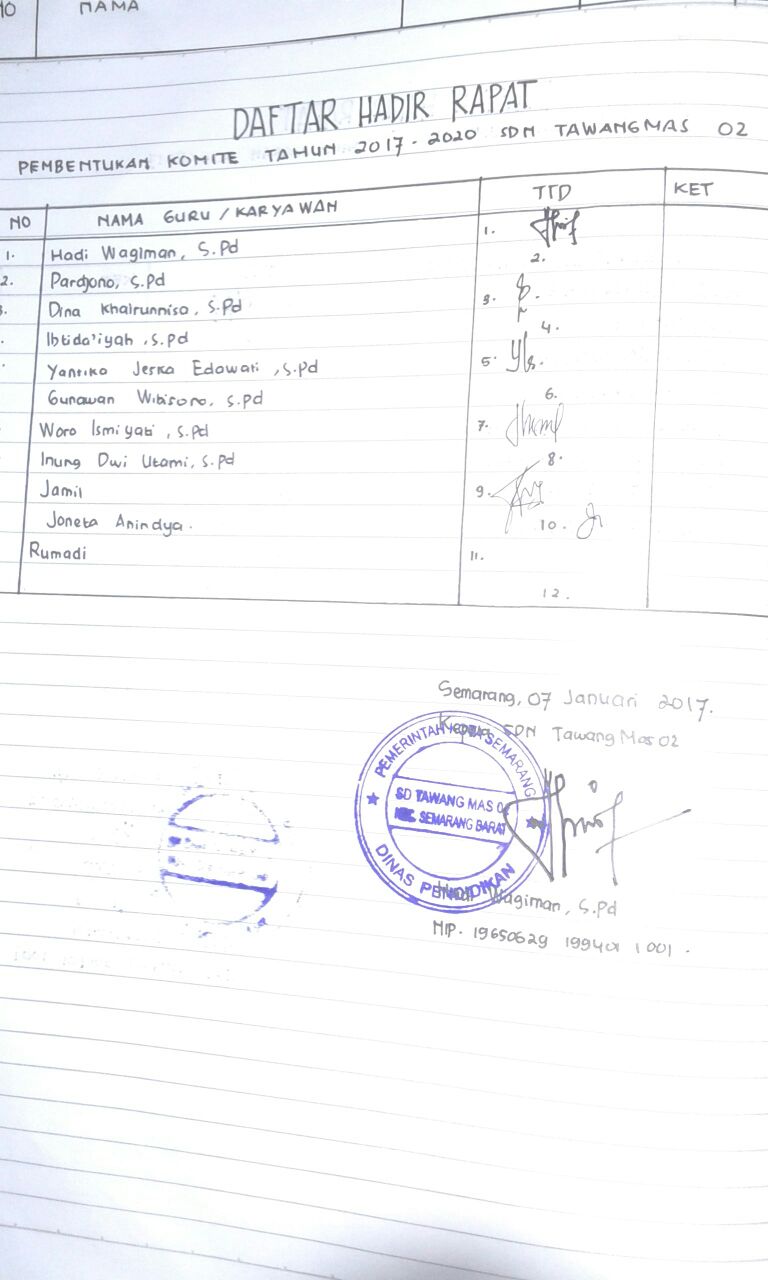 NO NAMA
DAFTAR HADIR RAPAT
PEMBENTUKAN KOMITE TAHUN 2017-2020 SDN TAWANGMAS 02
NO NAMA GURU / KARYAWAN TTD KET
1. Hadi Wagiman, S.Pd 1.
2. Pardjono, S.Pd 2.
3. Dina Khairunniso, S.Pd 3.
Ibtida'iyah, S.Pd 4.
Yantika Jerka Edowati, S.Pd 5.
Gunawan Wibisono, S.Pd 6.
Woro Ismiyati, S.Pd 7.
Inung Dwi Utami, S.Pd 8.
Jamil 9.
Joneta Anindya. 10.
Rumadi 11.
12.
Semarang, 07 Januari 2017.
Kepala SDN Tawang Mas 02
PEMERINTAH KOTA SEMARANG
SD TAWANG MAS 0
KEC. SEMARANG BARAT
DINAS PENDIDIKAN
Hadi Wagiman, S.Pd
NIP. 19650629 199401 1 001.